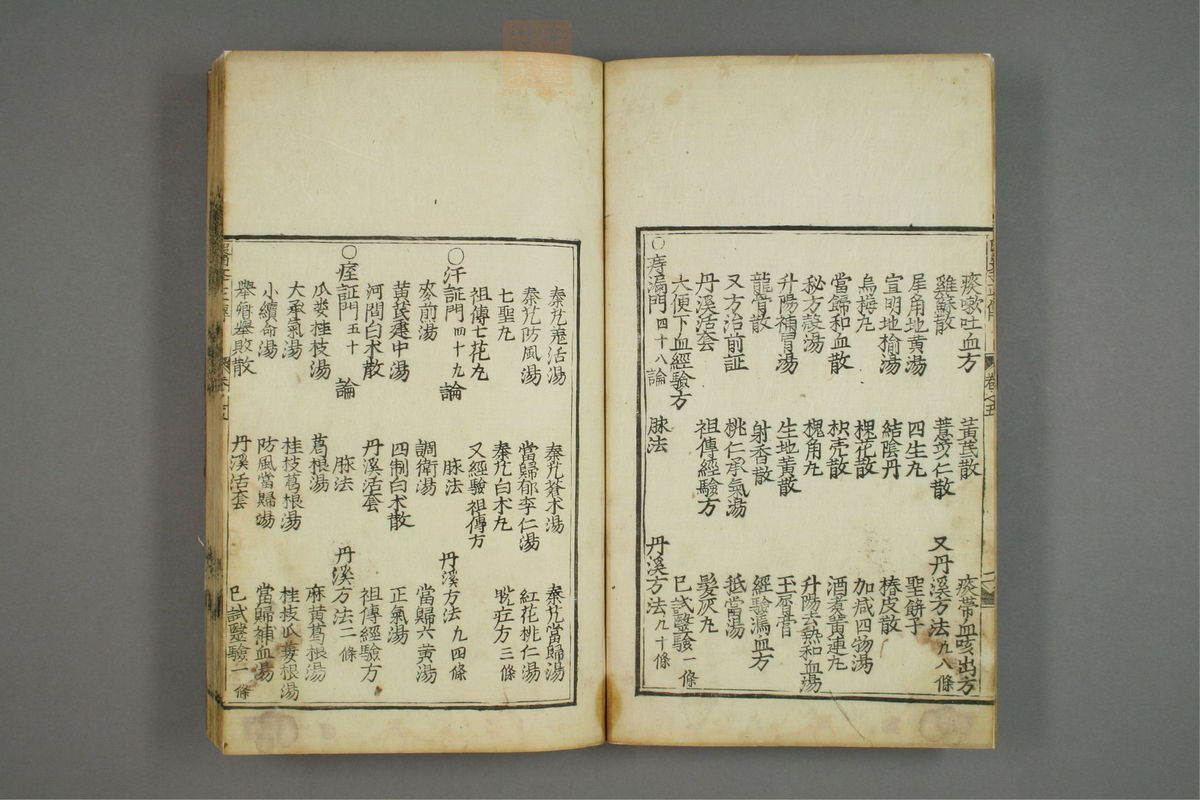 痰嗽吐血方 黃芪散 痰帶血咳出方
雞蘇散 薏苡仁散 又丹溪方法九八條
犀角地黃湯 四生丸 聖餠子
宣明地楡湯 結陰丹 椿皮散
烏梅丸 槐花散 加减四物湯
當歸和血散 枳壳散 酒煮黃連丸
秘方殼湯 槐角丸 升陽去熱和血湯
升陽補胃湯 生地黃散 玉屑膏
龍骨散 射香散 經驗漏血方
又方治前証 桃仁承氣湯 抵當湯
丹溪活套 祖傳經驗方 髮灰丸
大便下血經驗方 已試醫驗一條
○痔漏門四十八論 脉法 丹溪方法九十條
秦艽羌活湯 秦艽蒼朮湯 秦艽當歸湯
秦艽防風湯 當歸郁李仁湯 紅花桃仁湯
七聖丸 秦艽白朮丸 脫疘方三條
祖傳七花丸 又經驗祖傳方
○汗証門四十九論 脉法 丹溪方法九四條
麥前湯 調衛湯 當歸六黃湯
黃芪建中湯 四制白朮散 正氣湯
河間白朮散 丹溪活套 祖傳經驗方
○痓証門五十論 脉法 丹溪方法二條
瓜蔞桂枝湯 葛根湯 麻黃葛根湯
大承氣湯 桂枝葛根湯 桂枝瓜蔞根湯
小續命湯 防風當歸湯 當歸補血湯
擧卿擧敗散 丹溪活套 已試醫驗一條